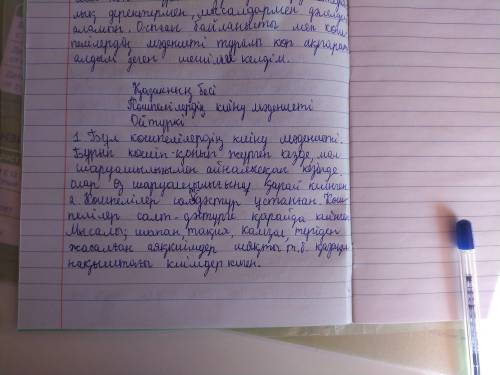 лық деректермен, мысалдармен дәлелдей
аламын. Осыған байланысты мен көш-
пелілердің мәдениеті туралы көп ақпарат
алдым деген шешімге келдім.
Қазақтың бесі
Көшпелілердің киіну мәдениеті
Ой түрткі
1. Бұл көшпелілердің киіну мәдениеті.
Бұрын көшіп-қонып жүрген кезде, мал
шаруашылығымен айналысқан кезінде,
олар өз шаруашылығына қарай киінген
2. Көшпелілер салт-дәстүр ұстанған. Көш-
пелілер салт-дәстүрге қарайда киінген
Мысалы, шапан, тақия, камзол, теріден
жасалған аяқкиімдер шоқты т.б. қазақи
нақыштағы киімдер киген.